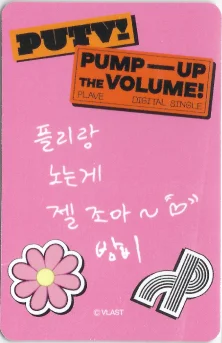 PUTV!
PUMP—UP
THE VOLUME!
PLAVE DIGITAL SINGLE
플리랑
노는게
젤 조아~
밤비
© VLAST